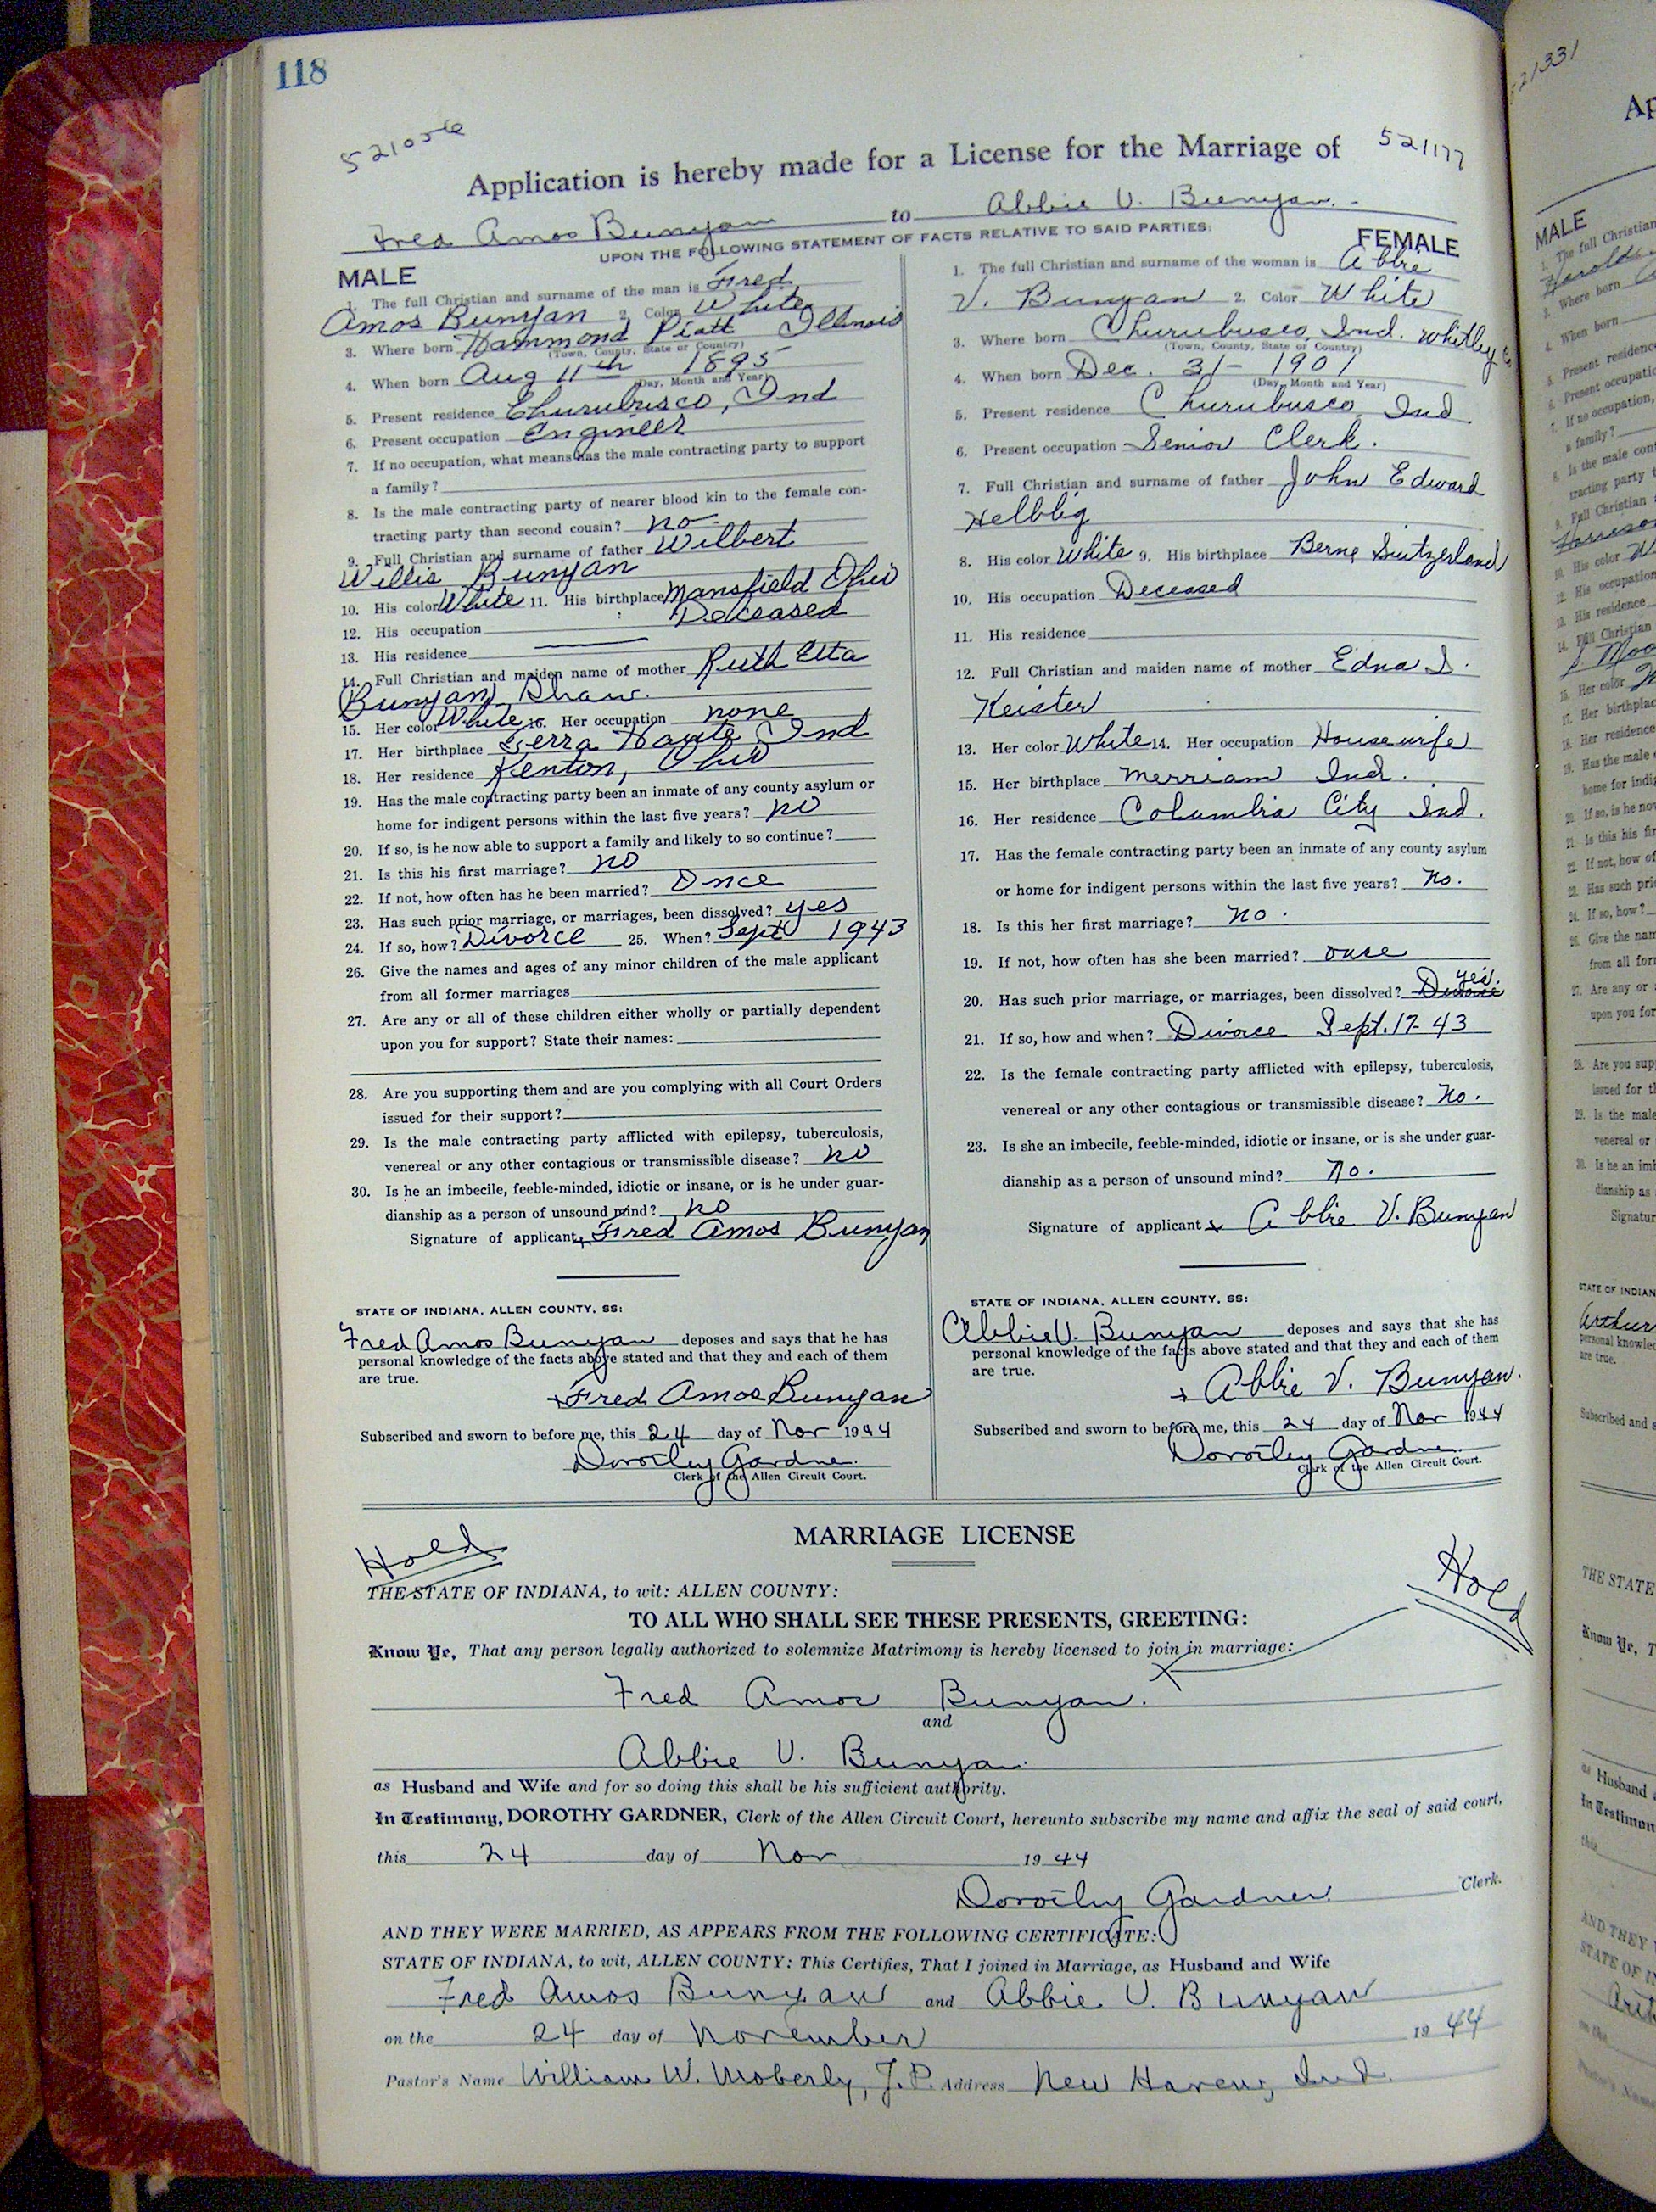 118
521056
521177
Application is hereby made for a License for the Marriage of
Fred Amos Bunyan to Abbie V. Bunyan
UPON THE FOLLOWING STATEMENT OF FACTS RELATIVE TO SAID PARTIES:
MALE
1. The full Christian and surname of the man is Fred
Amos Bunyan 2. Color White
3. Where born Hammond Piatt Illinois
(Town, County, State or Country)
4. When born Aug 11th 1895
(Day, Month and Year)
5. Present residence Churubusco, Ind
6. Present occupation Engineer
7. If no occupation, what means has the male contracting party to support
a family?
8. Is the male contracting party of nearer blood kin to the female con-
tracting party than second cousin? no
9. Full Christian and surname of father Wilbert
Willis Bunyan
10. His color White 11. His birthplace Mansfield Ohio
12. His occupation Deceased
13. His residence
14. Full Christian and maiden name of mother Ruth Etta
Bunyan) Shaw.
15. Her color White 16. Her occupation none
17. Her birthplace Terra Haute Ind
18. Her residence Kenton, Ohio
19. Has the male contracting party been an inmate of any county asylum or
home for indigent persons within the last five years? no
20. If so, is he now able to support a family and likely to so continue?
21. Is this his first marriage? no
22. If not, how often has he been married? Once
23. Has such prior marriage, or marriages, been dissolved? yes
24. If so, how? Divorce 25. When? Sept 1943
26. Give the names and ages of any minor children of the male applicant
from all former marriages
27. Are any or all of these children either wholly or partially dependent
upon you for support? State their names:
28. Are you supporting them and are you complying with all Court Orders
issued for their support?
29. Is the male contracting party afflicted with epilepsy, tuberculosis,
venereal or any other contagious or transmissible disease? no
30. Is he an imbecile, feeble-minded, idiotic or insane, or is he under guar-
dianship as a person of unsound mind? no
Signature of applicant Fred Amos Bunyan
STATE OF INDIANA, ALLEN COUNTY, SS:
Fred Amos Bunyan deposes and says that he has
personal knowledge of the facts above stated and that they and each of them
are true.
Fred Amos Bunyan
Subscribed and sworn to before me, this 24 day of Nov 1944
Dorothy Gardner
Clerk of the Allen Circuit Court.
FEMALE
1. The full Christian and surname of the woman is Abbie
V. Bunyan 2. Color White
3. Where born Churubusco, Ind. Whitley Co
(Town, County, State or Country)
4. When born Dec. 31 - 1901
(Day, Month and Year)
5. Present residence Churubusco Ind
6. Present occupation Senior Clerk.
7. Full Christian and surname of father John Edward
Helblig
8. His color White 9. His birthplace Berne Switzerland
10. His occupation Deceased
11. His residence
12. Full Christian and maiden name of mother Edna S.
Keister
13. Her color White 14. Her occupation Housewife
15. Her birthplace Merriam Ind.
16. Her residence Columbia City Ind.
17. Has the female contracting party been an inmate of any county asylum
or home for indigent persons within the last five years? No.
18. Is this her first marriage? no.
19. If not, how often has she been married? once
20. Has such prior marriage, or marriages, been dissolved? Divorce yes.
21. If so, how and when? Divorce Sept. 17-43
22. Is the female contracting party afflicted with epilepsy, tuberculosis,
venereal or any other contagious or transmissible disease? No.
23. Is she an imbecile, feeble-minded, idiotic or insane, or is she under guar-
dianship as a person of unsound mind? No.
Signature of applicant Abbie V. Bunyan
STATE OF INDIANA, ALLEN COUNTY, SS:
Abbie V. Bunyan deposes and says that she has
personal knowledge of the facts above stated and that they and each of them
are true.
Abbie V. Bunyan.
Subscribed and sworn to before me, this 24 day of Nov 1944
Dorothy Gardner
Clerk of the Allen Circuit Court.
MARRIAGE LICENSE
Hold
Hold
THE STATE OF INDIANA, to wit: ALLEN COUNTY:
TO ALL WHO SHALL SEE THESE PRESENTS, GREETING:
Know Ye, That any person legally authorized to solemnize Matrimony is hereby licensed to join in marriage:
Fred Amos Bunyan.
and
Abbie V. Bunyan
as Husband and Wife and for so doing this shall be his sufficient authority.
In Testimony, DOROTHY GARDNER, Clerk of the Allen Circuit Court, hereunto subscribe my name and affix the seal of said court,
this 24 day of Nov 1944
Dorothy Gardner Clerk.
AND THEY WERE MARRIED, AS APPEARS FROM THE FOLLOWING CERTIFICATE:
STATE OF INDIANA, to wit, ALLEN COUNTY: This Certifies, That I joined in Marriage, as Husband and Wife
Fred Amos Bunyan and Abbie V. Bunyan
on the 24 day of November 1944
Pastor's Name William W. Moberly, J.P. Address New Haven, Ind.